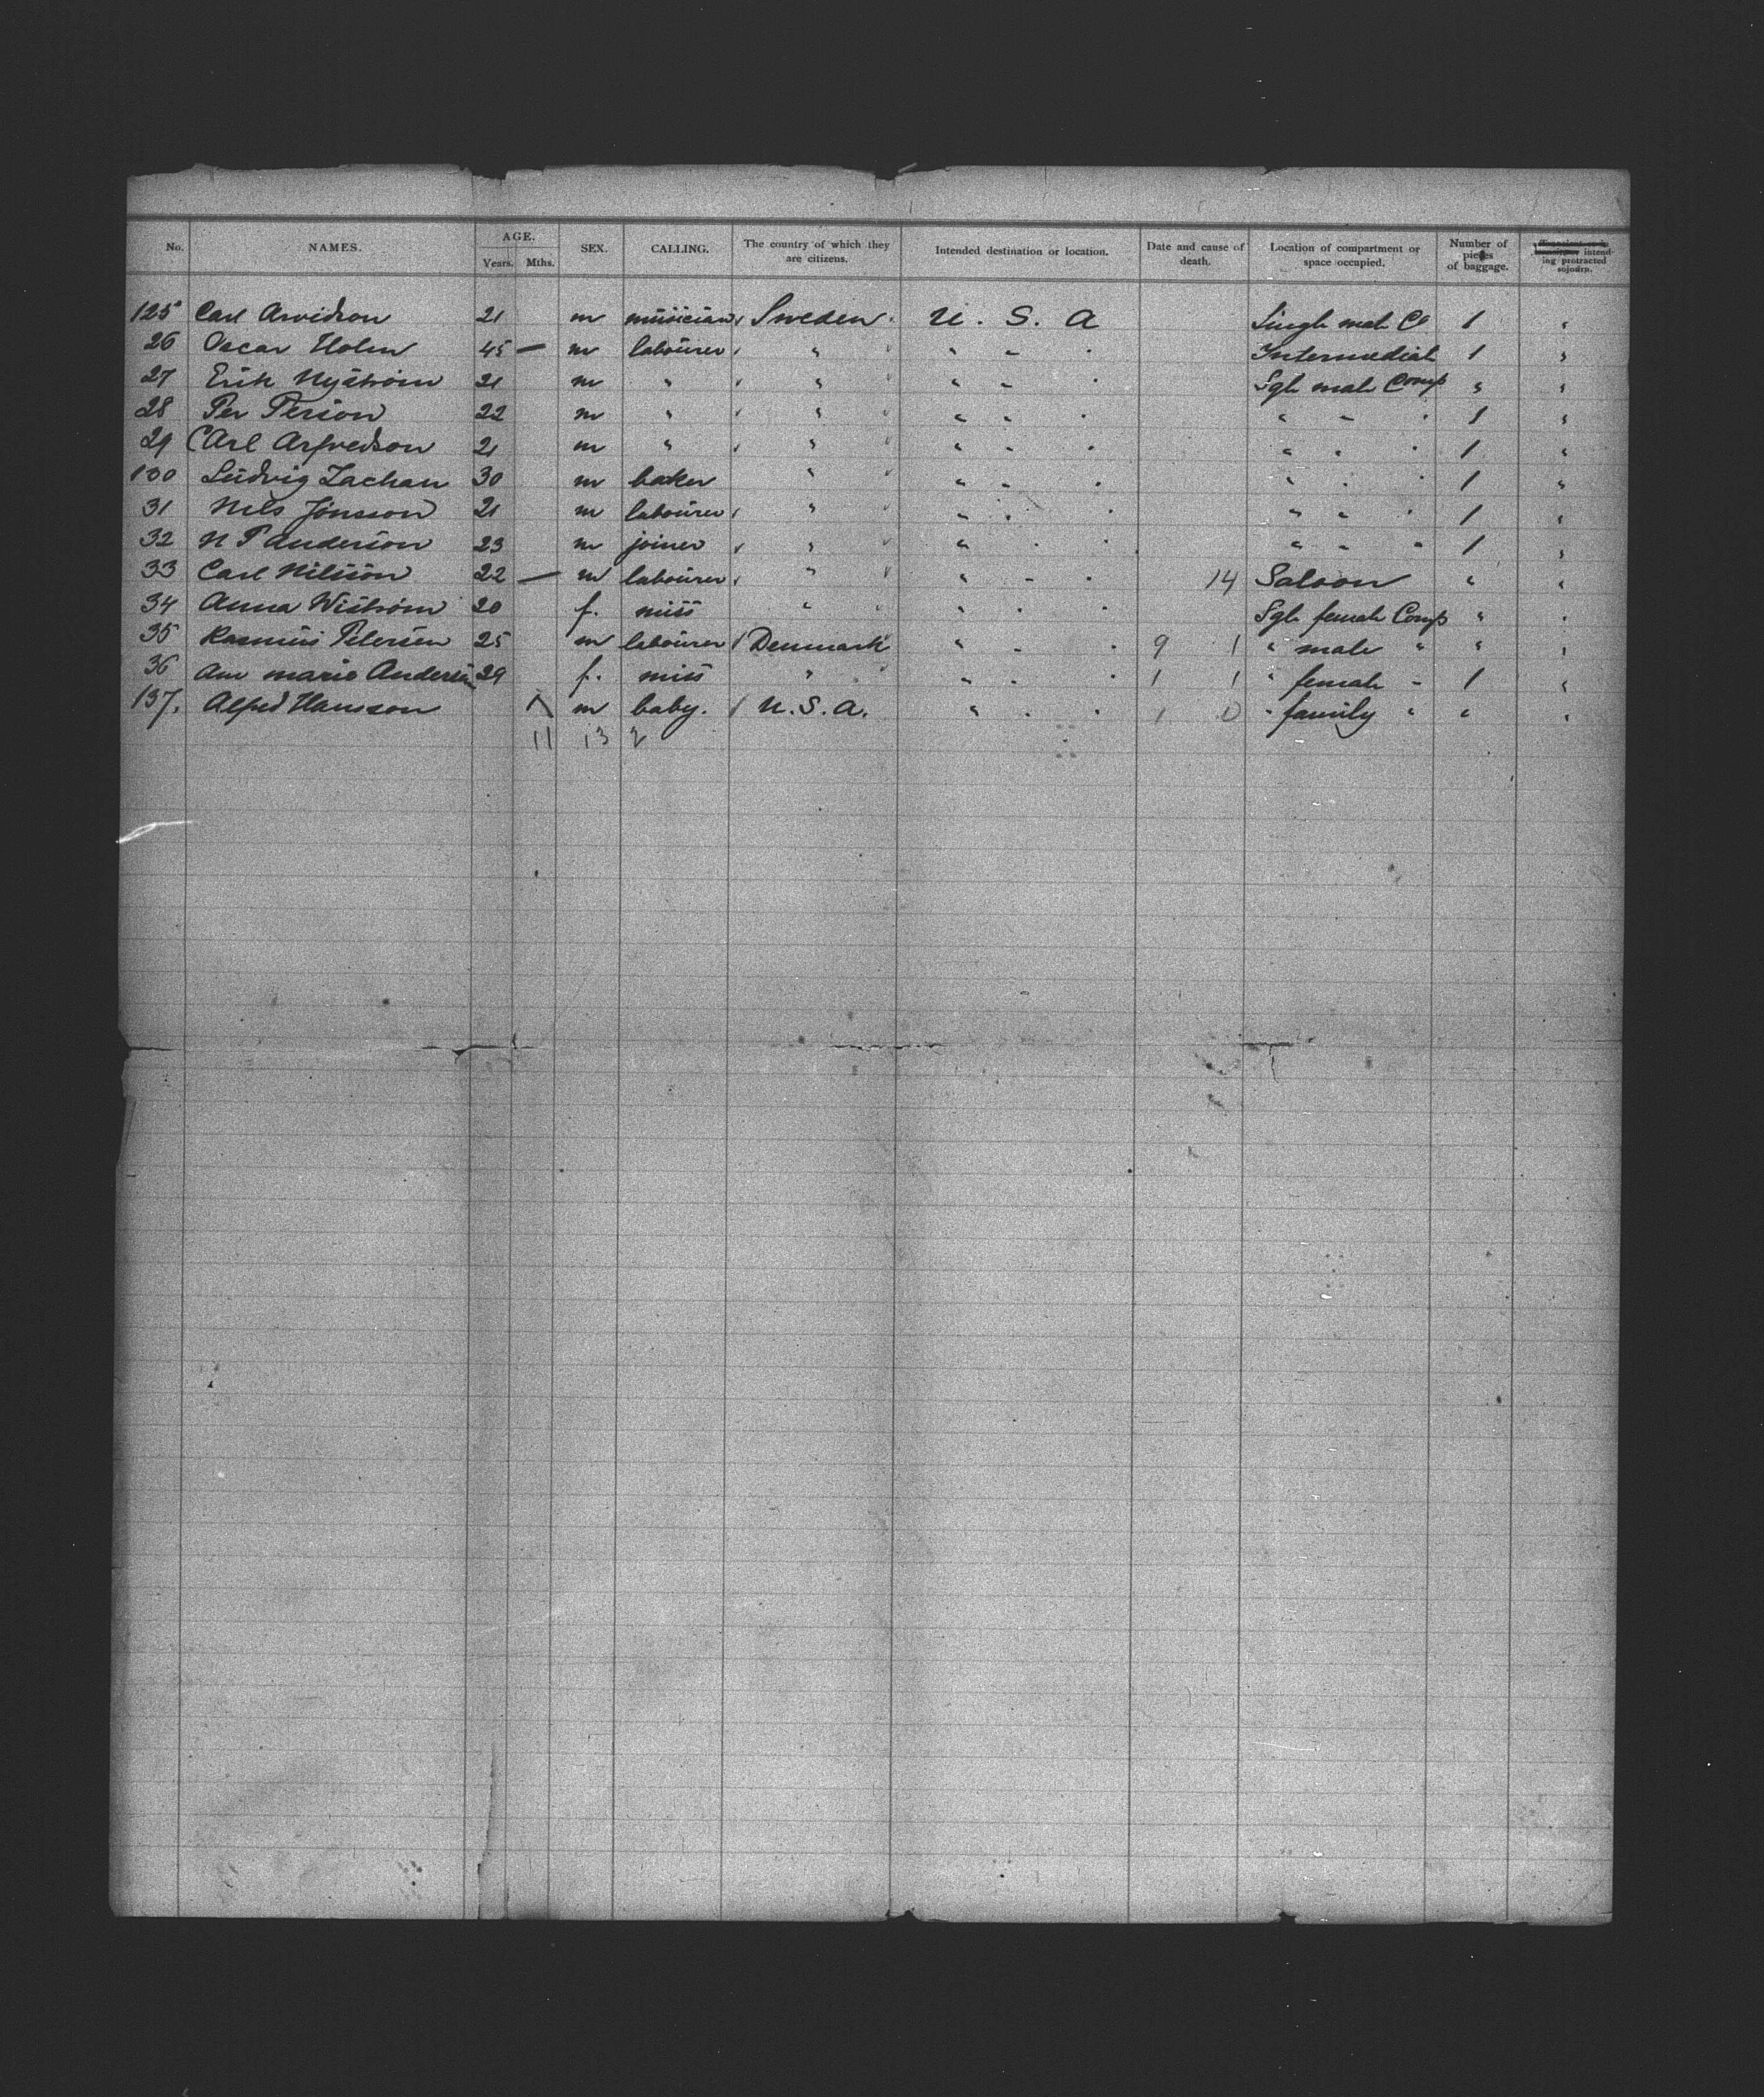 No. NAMES. AGE. Years. Mths. SEX. CALLING. The country of which they are citizens. Intended destination or location. Date and cause of death. Location of compartment or space occupied. Number of pieces of baggage. intending protracted sojourn.
125 Carl Arvidson 21 m musician Sweden U. S. A Single male Cp 1 "
26 Oscar Holm 45 — m labourer " " " " Intermediat 1 "
27 Erik Nyström 21 m " " " " " Sgle male Comp " "
28 Per Person 22 m " " " " " " " " 1 "
29 Carl Arfvedson 21 m " " " " " " " " 1 "
130 Ludvig Zachau 30 m baker " " " " " " " 1 "
31 Nils Jönsson 21 m labourer " " " " " " " 1 "
32 N P Anderson 23 m joiner " " " " " " " 1 "
33 Carl Nilsson 22 — m labourer " " " " 14 Saloon " "
34 Anna Wiström 20 f. miss " " " " Sgle female Comp " "
35 Rasmus Petersen 25 m labourer Denmark " " " 9 1 " male " " "
36 Ane marie Andersen 29 f. miss " " " " 1 1 " female " 1 "
137. Alfred Hansson m baby. U.S.A. " " " 1 0 " family " " "
11 13 2